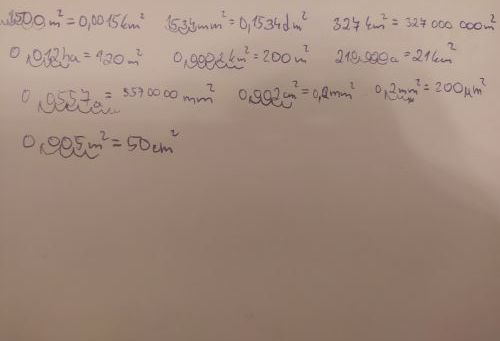 1500m² = 0,0015km² 1534mm² = 0,1534dm² 327km² = 327 000 000m²
0,012ha = 120m² 0,0002km² = 200m² 210,000a = 21km²
0,0557a = 5570000mm² 0,002cm² = 0,2mm² 0,2mm² = 200µm²
0,005m² = 50cm²